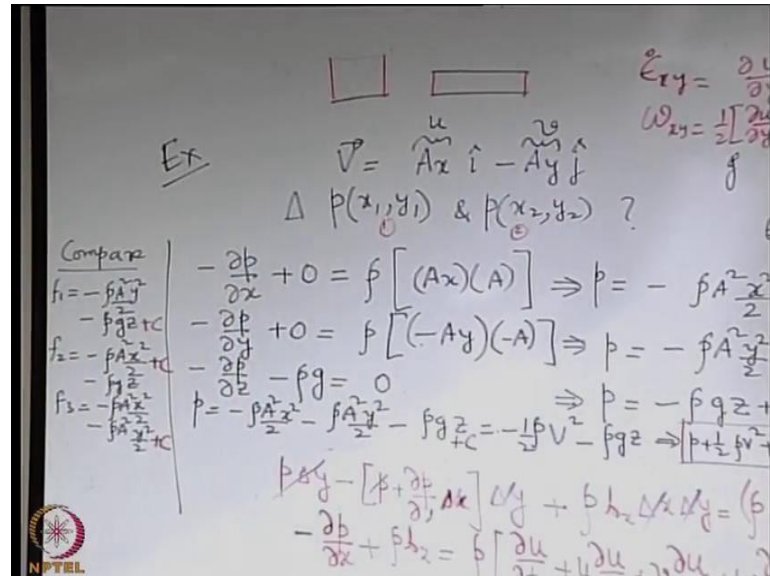 Ėxy = ∂u ∂y
ωxy = 1/2 [∂u ∂y
u v
Ex V⃗ = Ax î − Ay ĵ
Δ p(x1, y1) & p(x2, y2) ?
① ②
Compare
f1 = −ρA²y²/2 − ρgz + C
f2 = −ρA²x²/2 + C − ρgz
f3 = −ρA²x²/2 − ρA²y²/2 + C
−∂p/∂x + 0 = ρ[(Ax)(A)] ⇒ p = − ρA²x²/2
−∂p/∂y + 0 = ρ[(−Ay)(−A)] ⇒ p = − ρA²y²/2
−∂p/∂z − ρg = 0 ⇒ p = − ρgz +
p = −ρA²x²/2 − ρA²y²/2 − ρgz + C = −1/2 ρV² − ρgz ⇒ p + 1/2 ρV² +
pΔy − [p + ∂p/∂x Δx] Δy + ρbx Δx Δy = (ρ
−∂p/∂x + ρbx = ρ[∂u/∂t + u∂u ∂u
NPTEL